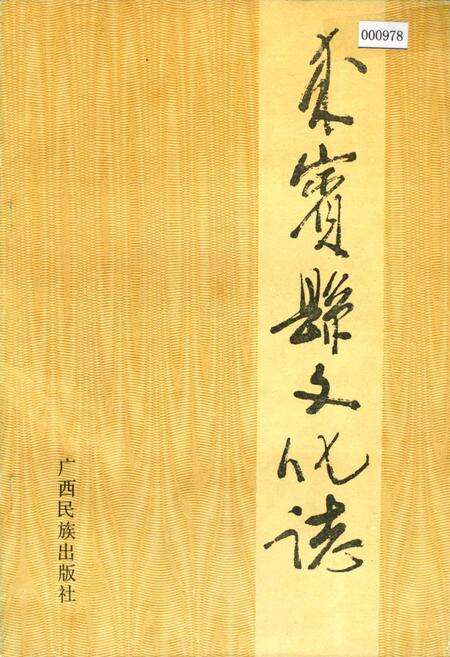 000978
来賓縣文化誌
广西民族出版社